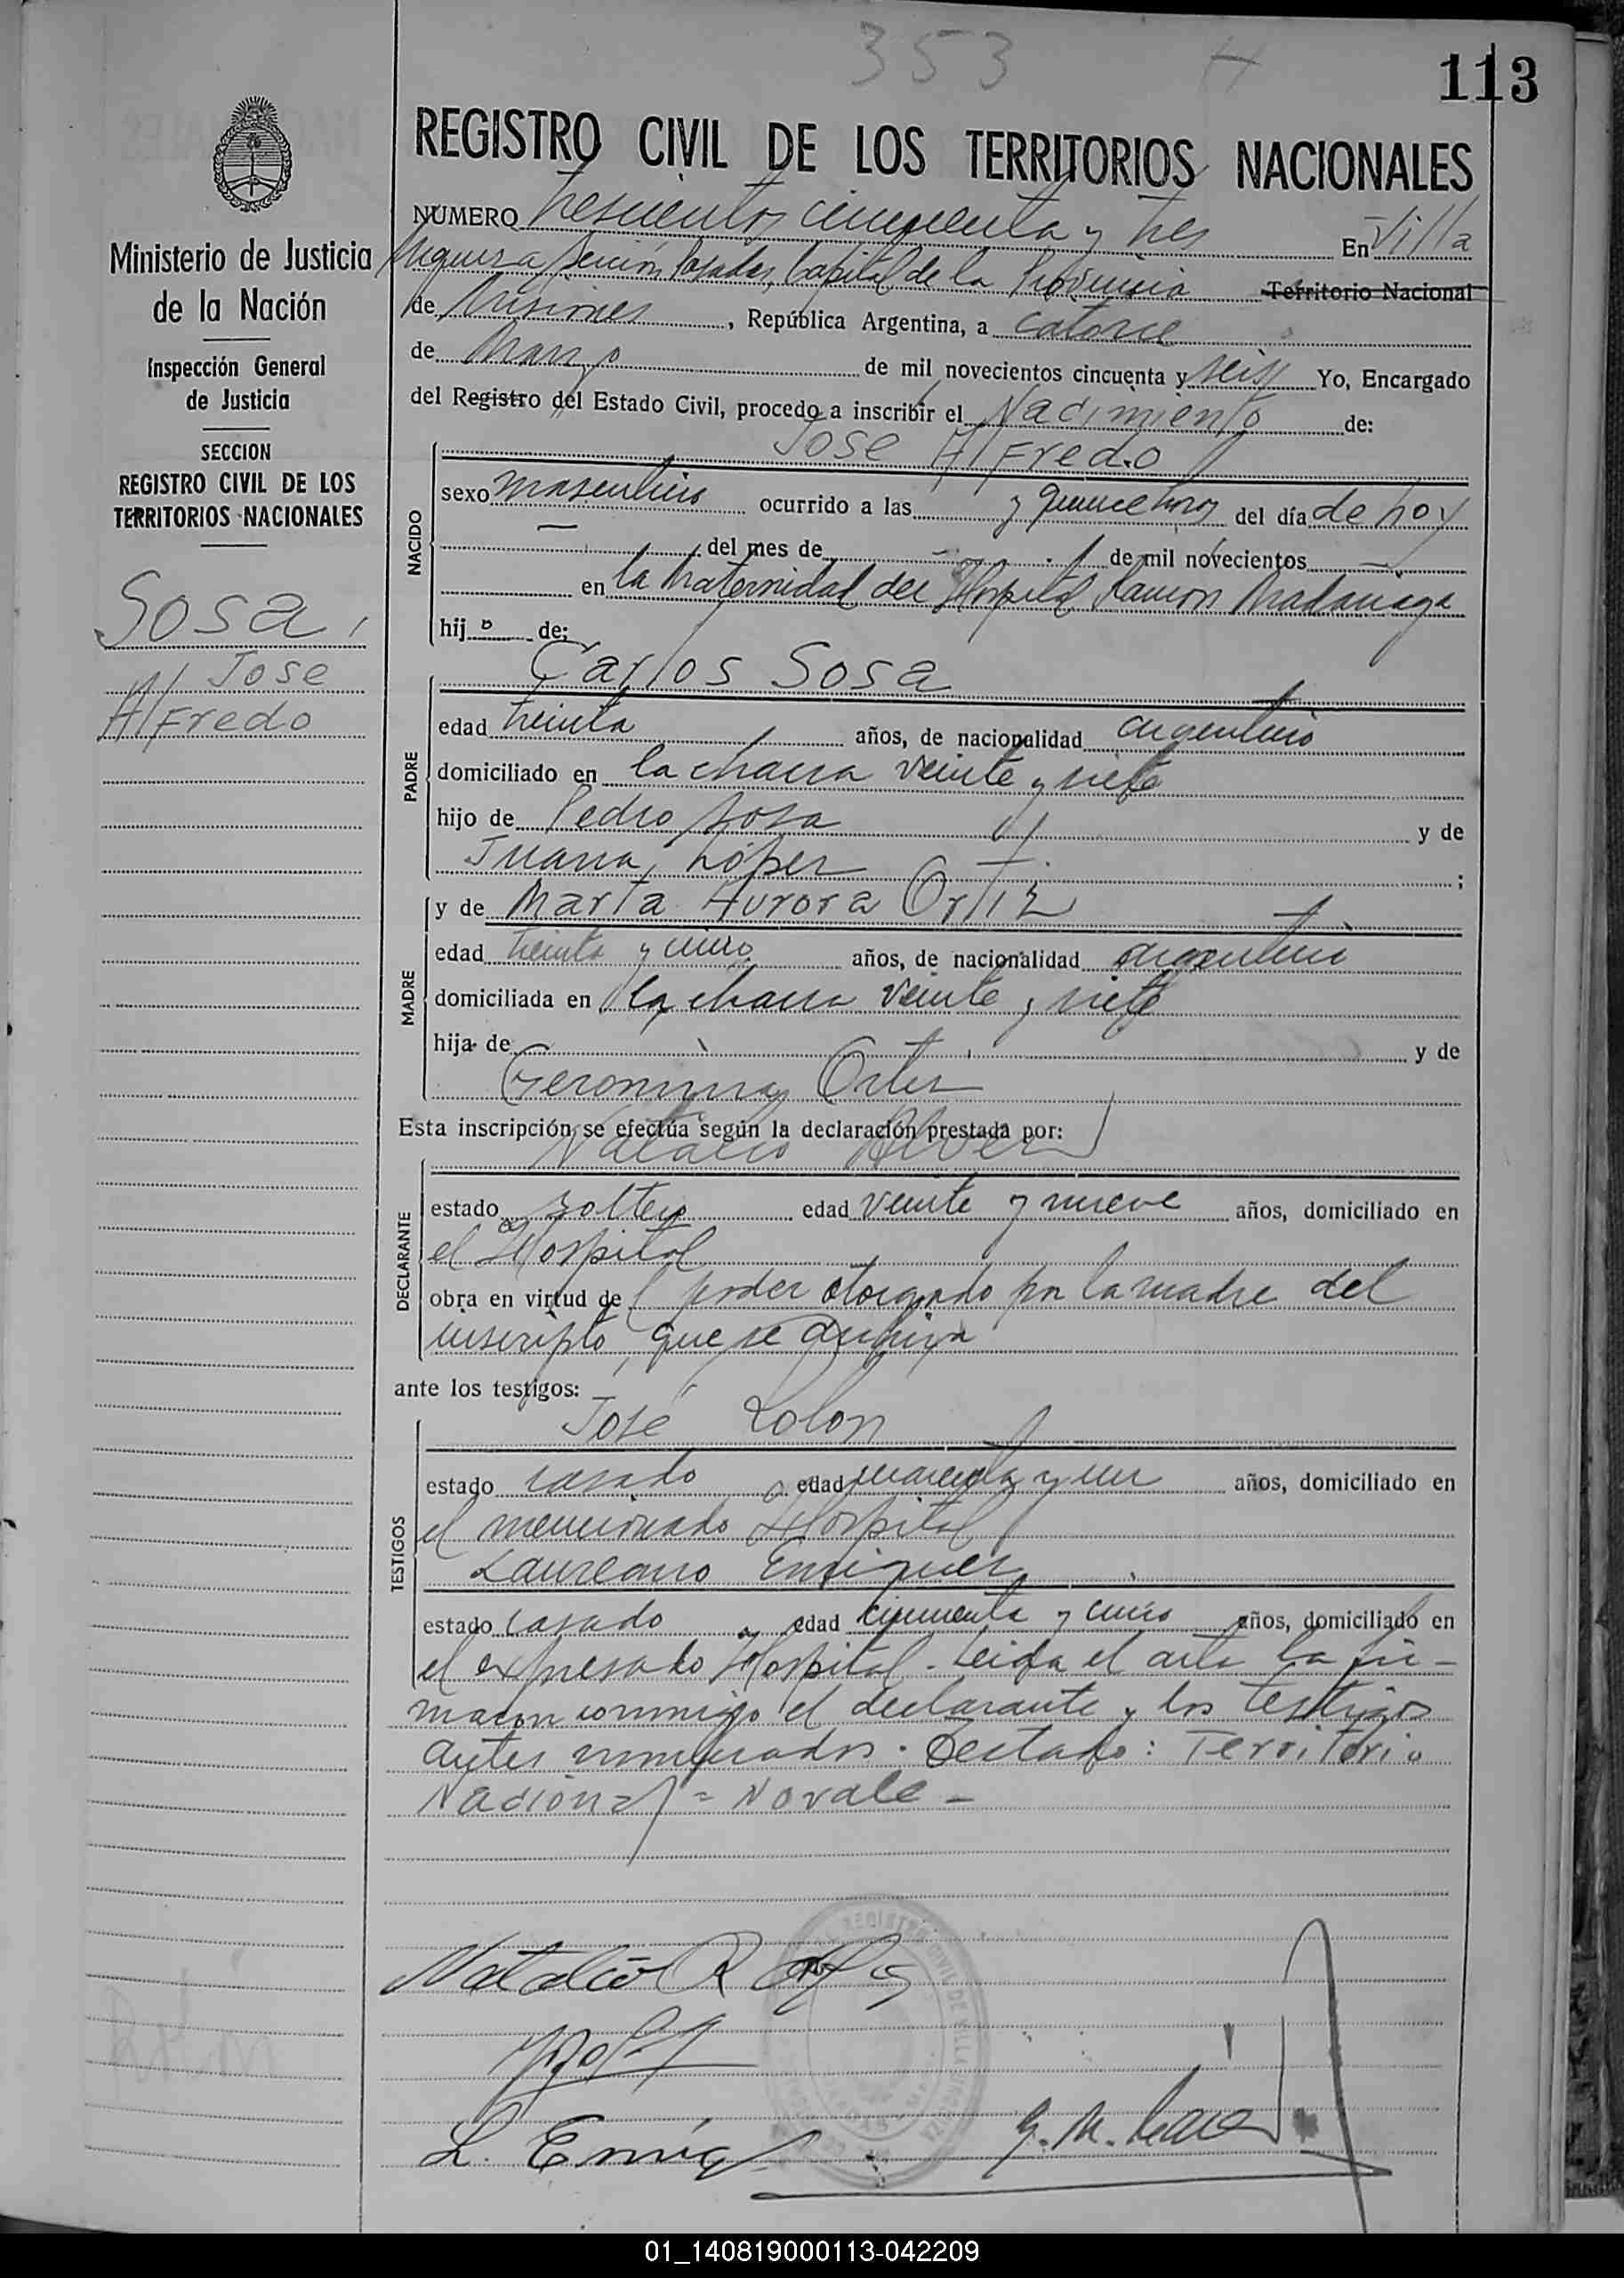 353
113
REGISTRO CIVIL DE LOS TERRITORIOS NACIONALES
NUMERO trescientos cincuenta y tres En Villa
Sección Posadas, Capital de la Provincia Territorio Nacional
de Misiones, República Argentina, a catorce
de Marzo de mil novecientos cincuenta y seis Yo, Encargado
del Registro del Estado Civil, procedo a inscribir el Nacimiento de:
Ministerio de Justicia
de la Nación
Inspección General
de Justicia
SECCION
REGISTRO CIVIL DE LOS
TERRITORIOS NACIONALES
Sosa,
Jose
Alfredo
NACIDO
Jose Alfredo
sexo masculino ocurrido a las y quince horas del día de hoy
del mes de de mil novecientos
en la Maternidad del Hospital Ramon Madariaga
hijo de:
PADRE
Carlos Sosa
edad treinta años, de nacionalidad argentino
domiciliado en la chacra veinte y siete
hijo de Pedro Sosa y de
Juana López ;
MADRE
y de Marta Aurora Ortiz
edad treinta y cinco años, de nacionalidad argentina
domiciliada en la chacra veinte y siete
hija de y de
Geronima Ortiz
Esta inscripción se efectúa según la declaración prestada por:
DECLARANTE
Natalio
estado soltero edad veinte y nueve años, domiciliado en
el Hospital
obra en virtud del poder otorgado por la madre del
inscripto, que se archiva
ante los testigos:
TESTIGOS
José Rolon
estado casado edad cuarenta y un años, domiciliado en
el mencionado Hospital
Laureano Enriquez
estado casado edad cincuenta y cinco años, domiciliado en
el expresado Hospital - Leida el acta la fir-
maron conmigo el declarante y los testigos
antes nombrados. Testado: Territorio
Nacional = No vale -
Natalio R
L. Enriq
01_140819000113-042209